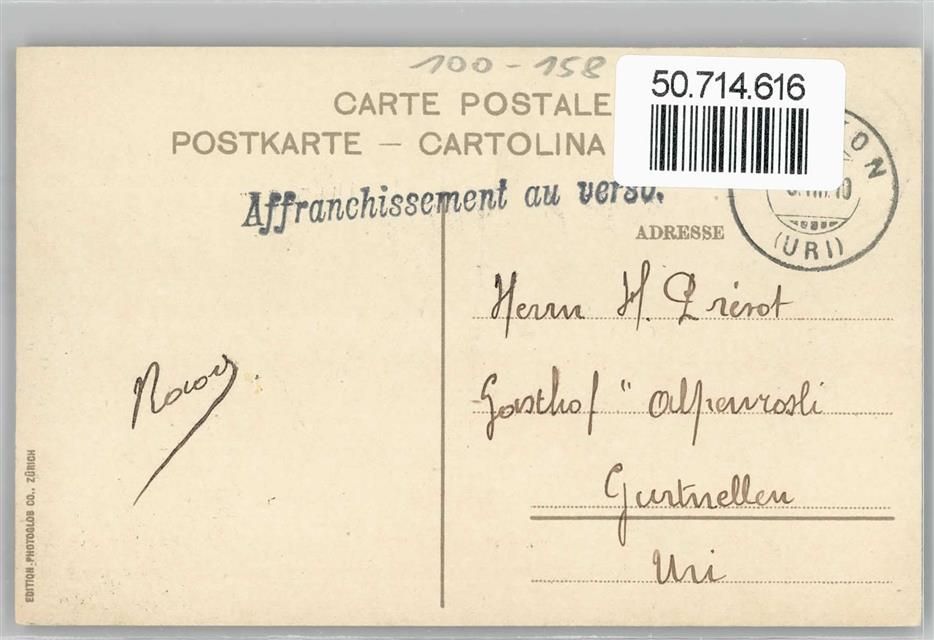 100-158
50.714.616
CARTE POSTALE
POSTKARTE – CARTOLINA
Affranchissement au verso.
ADRESSE
(URI)
Herrn H. Prévot
Gasthof "Alpenrösli
Gurtnellen
Uri
EDITION-PHOTOGLOB CO., ZÜRICH